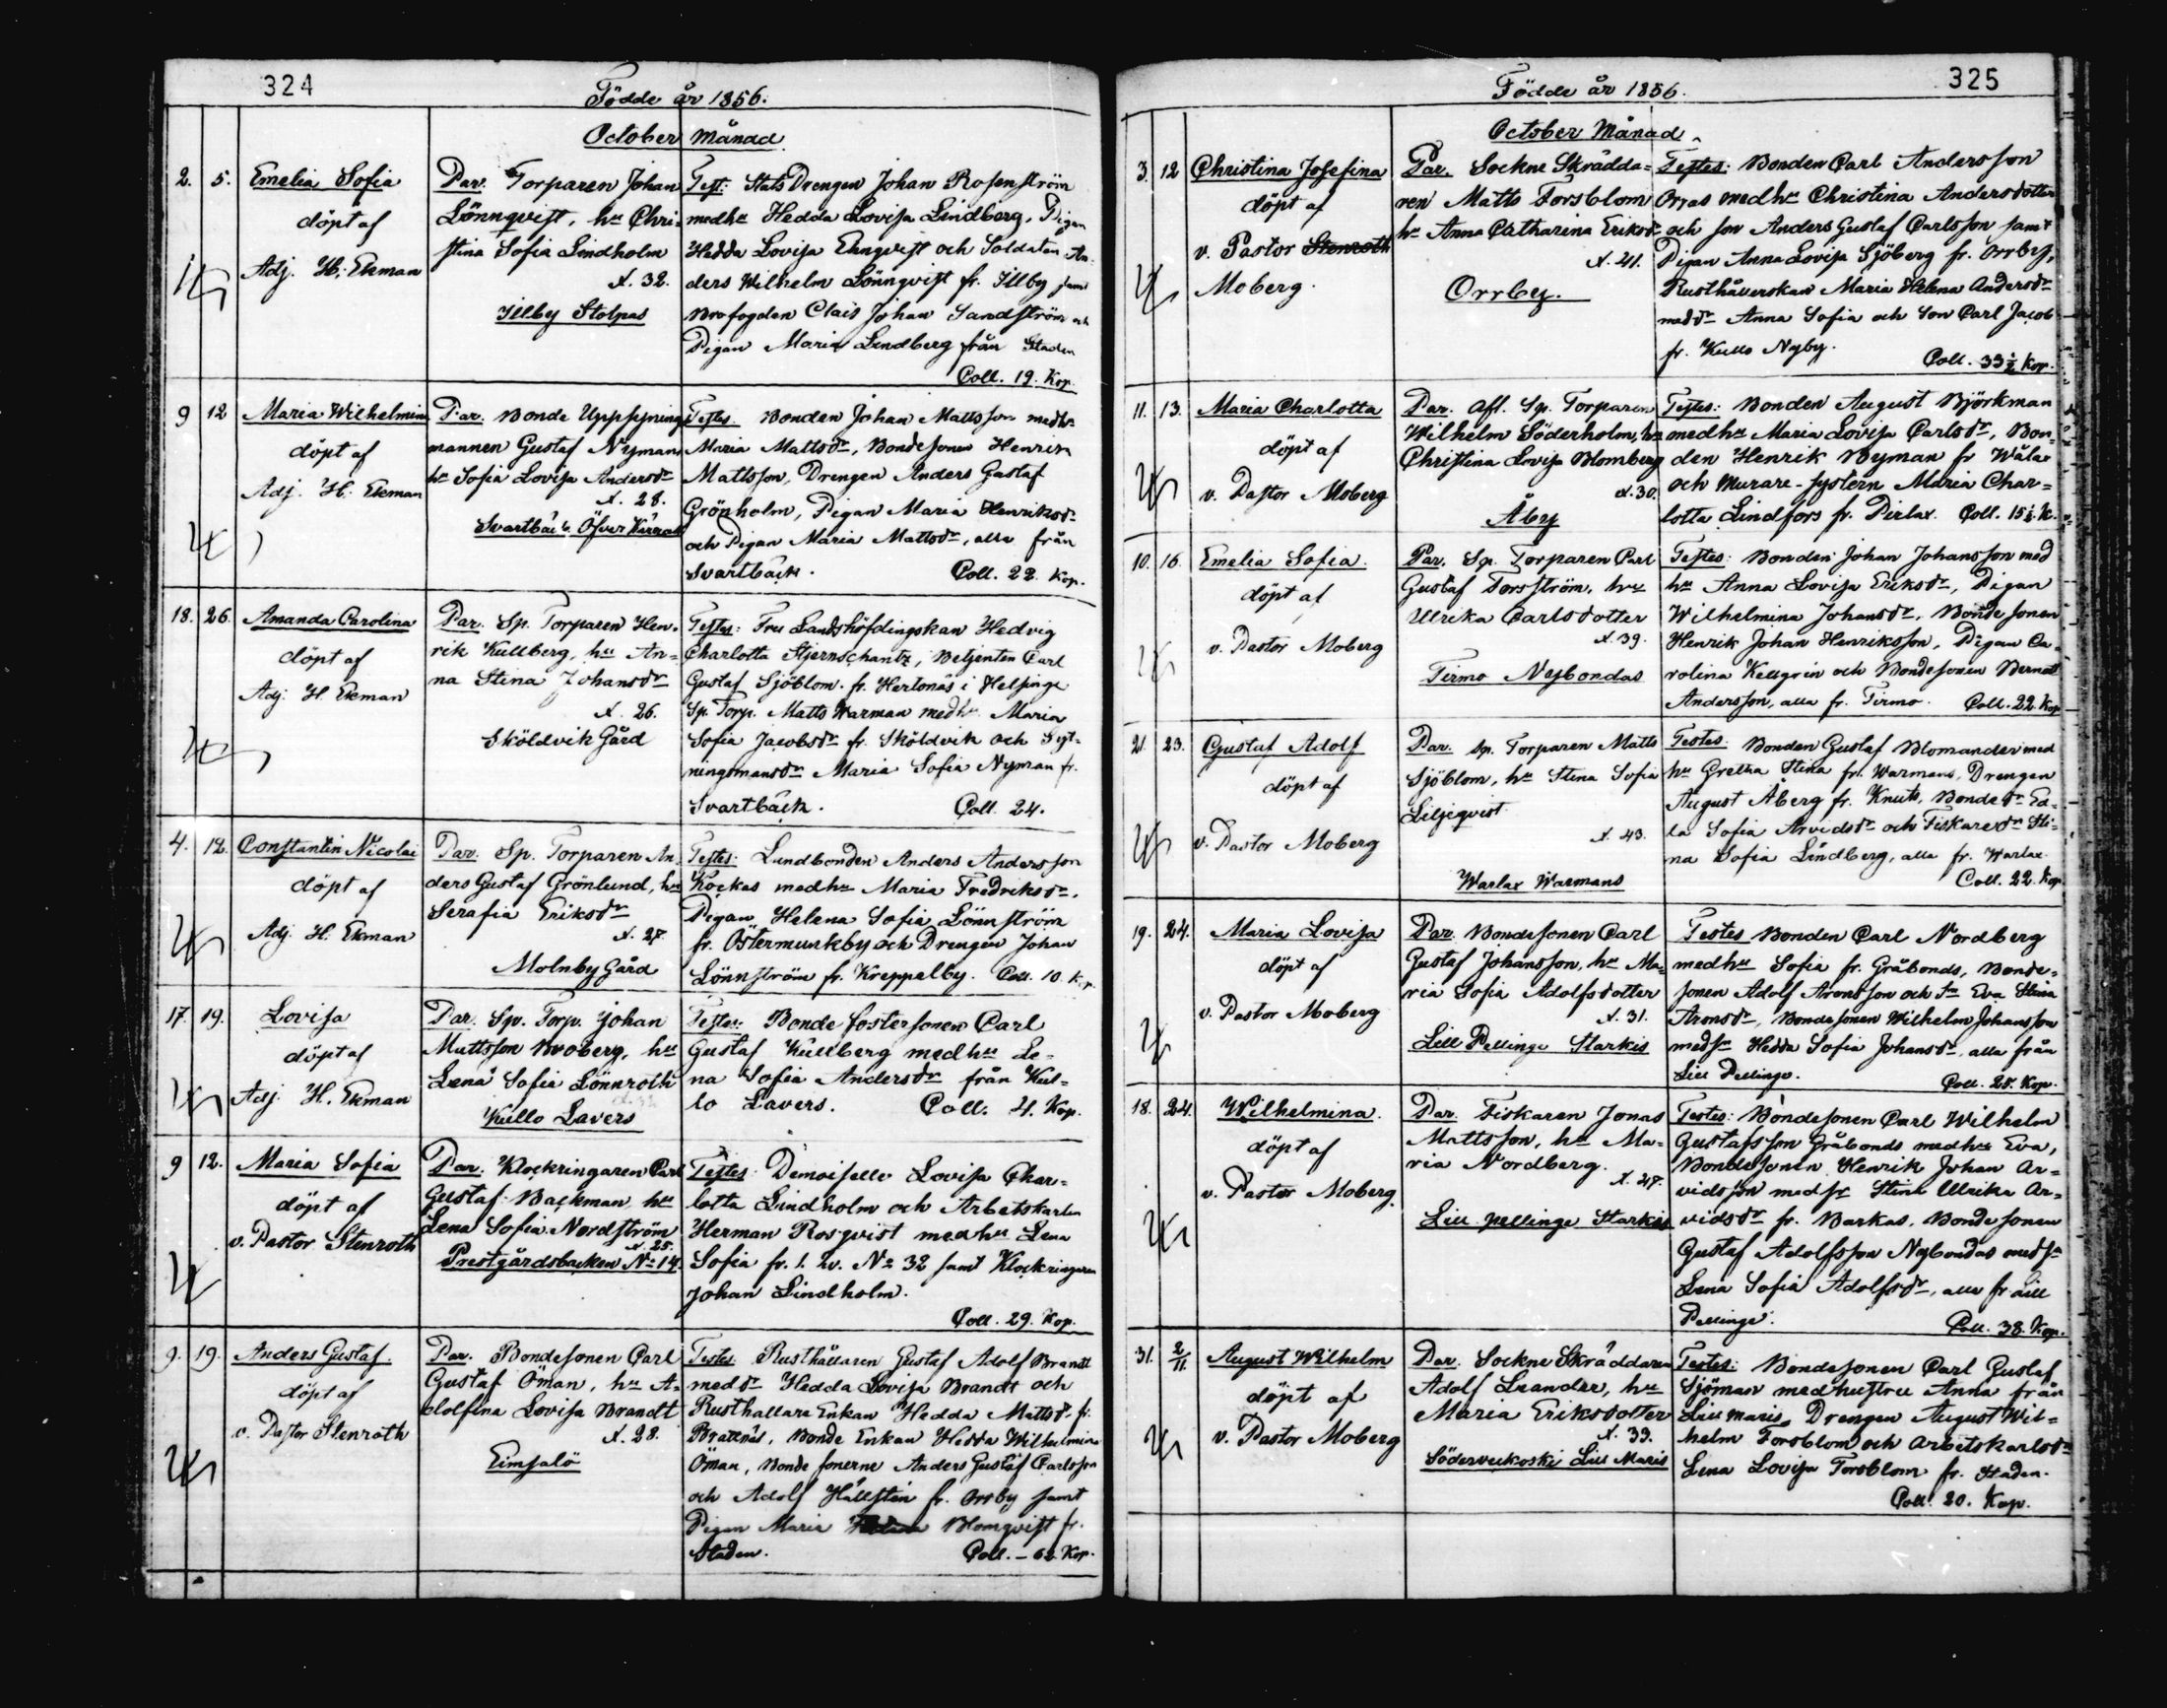 324
Födde år 1856.
October Månad
2. 5. Emelia Sofia
döpt af
Adj. H. Ekman
Par. Torparen Johan
Lönnqvist, hu Chri-
stina Sofia Lindholm
A. 32.
Illby Stolpas
Test: Stats Drengen Johan Rosenström
med hu Hedda Lovisa Lindberg, Pigan
Hedda Lovisa Enqvist och Soldaten An-
ders Wilhelm Lönnqvist fr. Illby samt
Brofogden Clais Johan Sandström och
Pigan Maria Lindberg från Staden
Coll. 19. Kop.
9 12 Maria Wilhelmina
döpt af
Adj. H. Ekman
Par. Bonde Uppsynings
mannen Gustaf Nyman
hu Sofia Lovisa Andersdr
A. 28.
Svartbäck Öfver
Testes. Bonden Johan Mattsson med hu
Maria Mattsdr, Bondesonen Henrik
Mattsson, Drengen Anders Gustaf
Grönholm, Pigan Maria Henriksdr
och Pigan Maria Mattsdr, alla från
Svartbäck. Coll. 22. Kop.
18. 26. Amanda Carolina
döpt af
Adj. H. Ekman
Par. Sp. Torparen Hen-
rik Kullberg, hu An-
na Stina Johansdr
A. 26.
Sköldvik Gård
Testes: Fru Landshöfdingskan Hedvig
Charlotta Stjernschantz, Betjenten Carl
Gustaf Sjöblom fr. Hertonäs i Helsinge
Sp. Torp. Matts Warman med hu Maria
Sofia Jacobsdr fr. Sköldvik och Syt-
ningsmansdr Maria Sofia Nyman fr.
Svartbäck. Coll. 24.
4. 12. Constantin Nicolai
döpt af
Adj. H. Ekman
Par. Sp. Torparen An-
ders Gustaf Grönlund, hu
Serafia Eriksdr
A. 27
Molnby Gård
Testes: Lundbonden Anders Andersson
Kockas med hu Maria Fredriksdr,
Pigan Helena Sofia Lönnström
fr. Östermunkby och Drengen Johan
Lönnström fr. Kreppelby. Coll. 10. Kop.
17. 19. Lovisa
döpt af
Adj. H. Ekman
Par. Sp. Torp. Johan
Mattsson Broberg, hu
Lena Sofia Lönnroth
A. 32
Kullo Lavers
Testes: Bonde fostersonen Carl
Gustaf Kullberg med hu Le-
na Sofia Andersdr från Kul-
lo Lavers. Coll. 4. Kop.
9 12. Maria Sofia
döpt af
v. Pastor Stenroth
Par. Klockringaren Carl
Gustaf Backman, hu
Lena Sofia Nordström
A. 25.
Prestgårdsbacken No 14.
Testes: Demoiselle Lovisa Char-
lotta Lindholm och Arbetskarlen
Herman Rosqvist med hu Lena
Sofia fr. 1. qv. No 32 samt Klockringaren
Johan Lindholm.
Coll. 29. Kop.
9. 19. Anders Gustaf.
döpt af
v. Pastor Stenroth
Par. Bondesonen Carl
Gustaf Öman, hu A-
dolfina Lovisa Brandt
A. 28.
Eimsalö
Testes Rusthållaren Gustaf Adolf Brandt
med dr Hedda Lovisa Brandt och
Rusthållare Enkan Hedda Mattsdr fr.
Brattnäs, Bonde Enkan Hedda Wilhelmina
Öman, Bonde sonerne Anders Gustaf Carlsson
och Adolf Hällsten fr. Orrby samt
Pigan Maria Blomqvist fr.
Staden. Coll. – 62. Kop.
325
Födde år 1856.
October Månad
3. 12 Christina Josefina
döpt af
v. Pastor Stenroth
Moberg.
Par. Sockne Skrädda-
ren Matts Forsblom
hu Anna Catharina Eriksdr
A. 41.
Orrby.
Testes: Bonden Carl Andersson
Orras med hu Christina Andersdotter
och son Anders Gustaf Carlsson samt
Pigan Anna Lovisa Sjöberg fr. Orrby,
Rusthåverskan Maria Helena Andersdr
med dr Anna Sofia och Son Carl Jacob
fr. Kullo Nyby.
Coll. 33 1/2 Kop.
11. 13. Maria Charlotta
döpt af
v. Pastor Moberg
Par. Afl. Sp. Torparen
Wilhelm Söderholm, hu
Christina Lovisa Blomberg
A. 30.
Åby
Testes: Bonden August Björkman
med hu Maria Lovisa Carlsdr, Bon-
den Henrik Nyman fr Wålax
och Murare-systern Maria Char-
lotta Lindfors fr. Pirlax. Coll. 15 1/2 K.
10. 16. Emelia Sofia.
döpt af
v. Pastor Moberg
Par. Sp. Torparen Carl
Gustaf Forsström, hu
Ulrika Carlsdotter
A. 39.
Tirmo Nybondas
Testes: Bonden Johan Johansson med
hu Anna Lovisa Eriksdr, Pigan
Wilhelmina Johansdr, Bonde sonen
Henrik Johan Henriksson, Pigan Ca-
rolina Kellgrin och Bondesonen Bernatt
Andersson, alla fr. Tirmo. Coll. 22. Kop
21. 23. Gustaf Adolf
döpt af
v. Pastor Moberg
Par. Sp. Torparen Matts
Sjöblom, hu Stina Sofia
Liljeqvist
A. 43.
Warlax Warmans
Testes: Bonden Gustaf Blomander med
hu Gretha Stina fr. Warmans, Drengen
August Åberg fr. Knuts, Bondedr Ed-
la Sofia Arvidsdr och Fiskaredr Sti-
na Sofia Lindberg, alla fr. Warlax.
Coll. 22. Kop.
19. 24. Maria Lovisa
döpt af
v. Pastor Moberg
Par. Bondesonen Carl
Gustaf Johansson, hu Ma-
ria Sofia Adolfsdotter
A. 31.
Lill Pellinge Starkis
Testes Bonden Carl Nordberg
med hu Sofia fr. Gråbonds, Bonde-
sonen Adolf Aronsson och sr Eva Stina
Aronsdr, Bondesonen Wilhelm Johansson
med sr Hedda Sofia Johansdr, alla från
Lill Pellinge. Coll. 25. Kop.
18. 24. Wilhelmina.
döpt af
v. Pastor Moberg.
Par. Fiskaren Jonas
Mattsson, hu Ma-
ria Nordberg.
A. 27.
Lill pellinge Starkis
Testes: Bondesonen Carl Wilhelm
Gustafsson Gråbonds med hu Eva,
Bondesonen Henrik Johan Ar-
vidsson med sr Stina Ulrika Ar-
vidsdr fr. Barkas, Bondesonen
Gustaf Adolfsson Nybondas med sr
Lena Sofia Adolfsdr, alla fr Lill
Pellinge. Coll. 38. Kop.
31. 2/11. August Wilhelm
döpt af
v. Pastor Moberg
Par. Sockne Skräddaren
Adolf Leander, hu
Maria Eriksdotter
A. 39.
Söderveckoski Lill Maris
Testes: Bondesonen Carl Gustaf
Sjöman med hustru Anna från
Lill maris, Drengen August Wil-
helm Forsblom och Arbetskarlsdr
Lena Lovisa Forsblom fr. Staden.
Coll. 20. Kop.